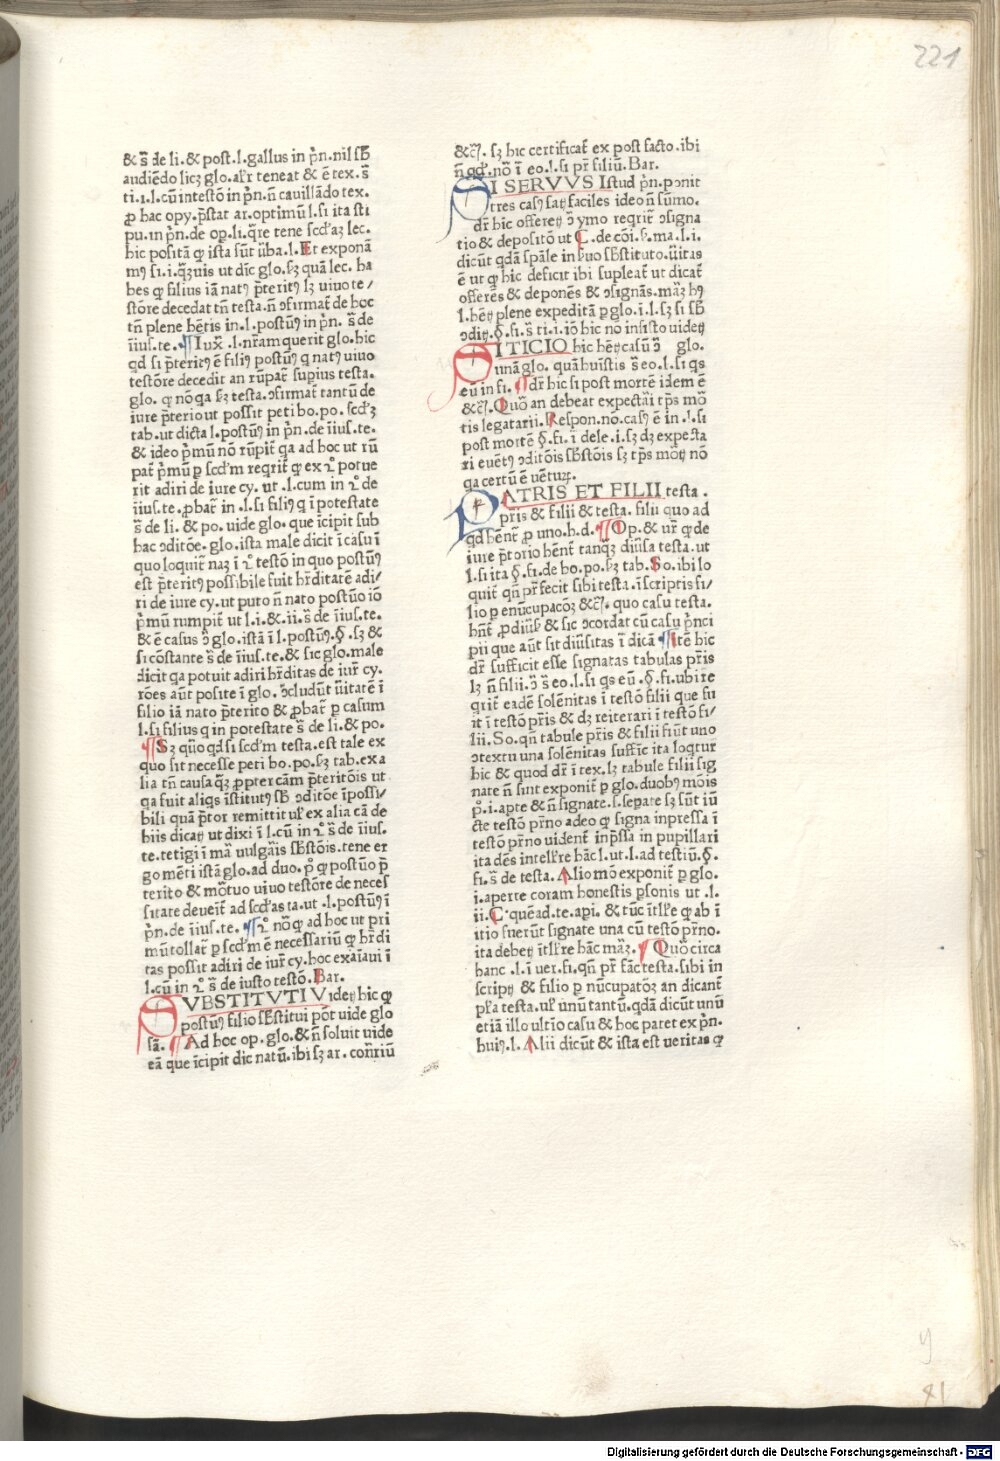 221
& s̃ de li. & post. l. gallus in p̃n. nil sb̃
audiẽdo licꝫ glo. al'r teneat & ẽ tex. s̃
ti. i. l. cũ intestõ in p̃n. ñ cauillãdo tex.
ꝓ hac opy. p̃stat ar. optimũ l. si ita sti
pu. in p̃n. de op. li. q̃re tene scd'aꝫ lec.
hic positã ꝙ ista sũt ũba. l. Et exponã
hic glo.
bes ꝙ filius iã natꝰ p̃teritꝰ lꝫ uiuo te/
stõre decedat tñ testa. ñ ɔfirmat̃ de hoc
tñ plene hẽtis in. l. postũꝰ in p̃n. s̃ de
ĩius. te. ¶ Iux̃ .l. nr̃am querit glo. hic
qd si p̃teritꝰ ẽ filiꝰ postũꝰ q natꝰ uiuo
testõre decedit an rũpat̃ supius testa.
glo. ꝙ nõ q̃a sꝫ testa. ɔfirmat̃ tantũ de
iure p̃terio ut possit peti bo. po. scd'ꝫ
tab. ut dicta l. postũꝰ in p̃n. de ĩius. te.
& ideo p̃mũ nõ rũpit̃ q̃a ad hoc ut rũ
pat̃ p̃mũ ꝑ scd'm reqrit̃ ꝙ ex 2° potue
rit adiri de iure cy. ut .l. cum in 2° de
ĩius. te. ꝓbat̃ in .l. si filiꝰ q ĩ potestate
s̃ de li. & po. uide glo. que ĩcipit sub
hac ɔditõe. glo. ista male dicit ĩ casu ĩ
quo loquit̃ naꝫ ĩ 2° testõ in quo postũꝰ
est p̃teritꝰ possibile fuit hr̃ditatẽ adi/
ri de iure cy. ut puto ñ nato postũo iõ
p̃mũ rumpit̃ ut l. i. & ii. s̃ de ĩius. te.
& ẽ casus ɔ̃ glo. istã ĩ l. postũꝰ. §. sꝫ &
si cõstante s̃ de ĩius. te. & sic glo. male
dicit q̃a potuit adiri hr̃ditas de iur̃ cy.
rões aũt posite ĩ glo. ɔcludũt ũitatẽ ĩ
filio iã nato p̃terito & ꝓbat̃ ꝑ casum
l. si filius q in potestate s̃ de li. & po.
¶ Sꝫ qũo qd si scd'm testa. est tale ex
quo sit necesse peti bo. po. sꝫ tab. ex a
lia tñ causa q̃ꝫ ꝓpter cãm p̃teritõis ut
q̃a fuit aliqs ĩstitutꝰ sb̃ ɔditõe ĩpossi/
bili quã p̃tor remittit ul' ex alia cã de
biis dicatꝫ ut dixi ĩ l. cũ in 2° s̃ de ĩius.
te. tetigi ĩ mã uulgãis sb̃stõis. tene er
go mẽti istã glo. ad duo. p° ꝙ postũo p̃
terito & mõtuo uiuo testõre de neces
sitate deueit̃ ad scd'as ta. ut .l. postũꝰ ĩ
p̃n. de ĩius. te. ¶ 2° nõ ꝙ ad hoc ut pri
mũ tollat̃ ꝑ scd'm ẽ necessariũ ꝙ hr̃di
tas possit adiri de iur̃ cy. hoc exaĩaui ĩ
l. cũ in 2° s̃ de iusto testõ. Bar.
SVBSTITVTI Videtꝫ hic ꝙ
postũꝰ filio sb̃stitui põt uide glo
sã. ¶ Ad hoc op. glo. & ñ soluit uide
eã que ĩcipit dic natũ. ibi sꝫ ar. cor̃riũ
&c̃. sꝫ hic certificat̃ ex post facto. ibi
ñ qd'. nõ ĩ eo. l. si pr̃ filiũ. Bar.
SI SERVVS Istud p̃n. ponit
tres casꝰ satꝫ faciles ideo ñ sũmo.
dr̃ hic offeretꝫ ɔ̃ ymo reqrit̃ ɔsigna
tio & depositõ ut C. de cõi. ẜ. ma. l. i.
dicũt qdã spãle in ẜuo sb̃stituto. ũitas
ẽ ut ꝙ hic deficit ibi supleat̃ ut dicat̃
offerẽs & deponẽs & ɔsignãs. mãꝫ hꝰ
l. hẽtꝫ plene expeditã ꝑ glo. ĩ. l. sꝫ si sb̃
ɔditꝫ. §. fi. s̃ ti. i. iõ hic nõ insisto uidetꝫ
SITICIO hic hẽtꝫ casũ ɔ̃ glo.
unã glo. quã huistis s̃ eo. l. si qs
eũ in fi. ¶ dr̃ hic si post mortẽ idem ẽ
&c̃. Quõ an debeat expectãi tp̃s mõ
tis legatarii. Respon. nõ. casꝰ ẽ in .l. si
post mortẽ §. fi. ĩ dele. i. sꝫ dꝫ expecta
ri euẽtꝰ ɔditõis sb̃stõis sꝫ tp̃s mõtꝫ nõ
q̃a certũ ẽ uẽtuꝝ.
PATRIS ET FILII testa.
pr̃is & filii & testa. filii quo ad
qd hẽnt̃ ꝓ uno. h. d. ¶ Op. & ur̃ ꝙ de
iure p̃torio hẽnt̃ tanq̃ꝫ diũsa testa. ut
l. si ita §. fi. de bo. po. sꝫ tab. So. ibi lo
quit̃ qñ pr̃ fecit sibi testa. ĩ scriptis fi/
lio ꝑ enũcupacõꝫ &c̃. quo casu testa.
hñt̃ ꝓ diũẜ & sic ɔcordat cũ casu p̃nci
pii que aũt sit diũsitas ĩ dicã ¶ Itẽ hic
dr̃ sufficit esse signatas tabulas pr̃is
lꝫ ñ filii. ɔ̃ s̃ eo. l. si qs eũ. §. fi. ubi re
qrit̃ eadẽ solẽnitas ĩ testõ filii que fu
it ĩ testõ pr̃is & dꝫ reiterari ĩ testõ fi/
lii. So. qñ tabule pr̃is & filii fiũt uno
ɔtextu una solẽnitas suffic̃ ita loqtur
hic & quod dr̃ ĩ tex. lꝫ tabule filii sig
nate ñ sint exponit̃ ꝑ glo. duobꝰ mõis
p°. i. apte & ñ signate. s. separate sꝫ sũt iũ
cte testõ pr̃no adeo ꝙ signa inpressa ĩ
testõ pr̃no uident̃ inp̃ssa in pupillari
ita dẽs intell're hãc l. ut .l. ad testiũ. §.
fi. s̃ de testa. Alio mõ exponit̃ ꝑ glo.
i. aperte coram honestis ꝑsonis ut .l.
ii. C. quẽad. te. api. & tũc ĩtll're ꝙ ab ĩ
itio fuerũt signate una cũ testõ pr̃no.
ita debetꝫ ĩtll're hãc mãꝫ. ¶ Quõ circa
hanc .l. ĩ uer. fi. qñ pr̃ fãc testa. sibi in
scriptꝫ & filio ꝑ nũcupatoꝫ an dicant̃
pl'a testa. ul' unũ tantũ. qdã dicũt unũ
etiã illo ultio casu & hoc patet ex p̃n.
huiꝰ. l. Alii dicũt & ista est ueritas ꝙ
y
41
Digitalisierung gefördert durch die Deutsche Forschungsgemeinschaft - DFG